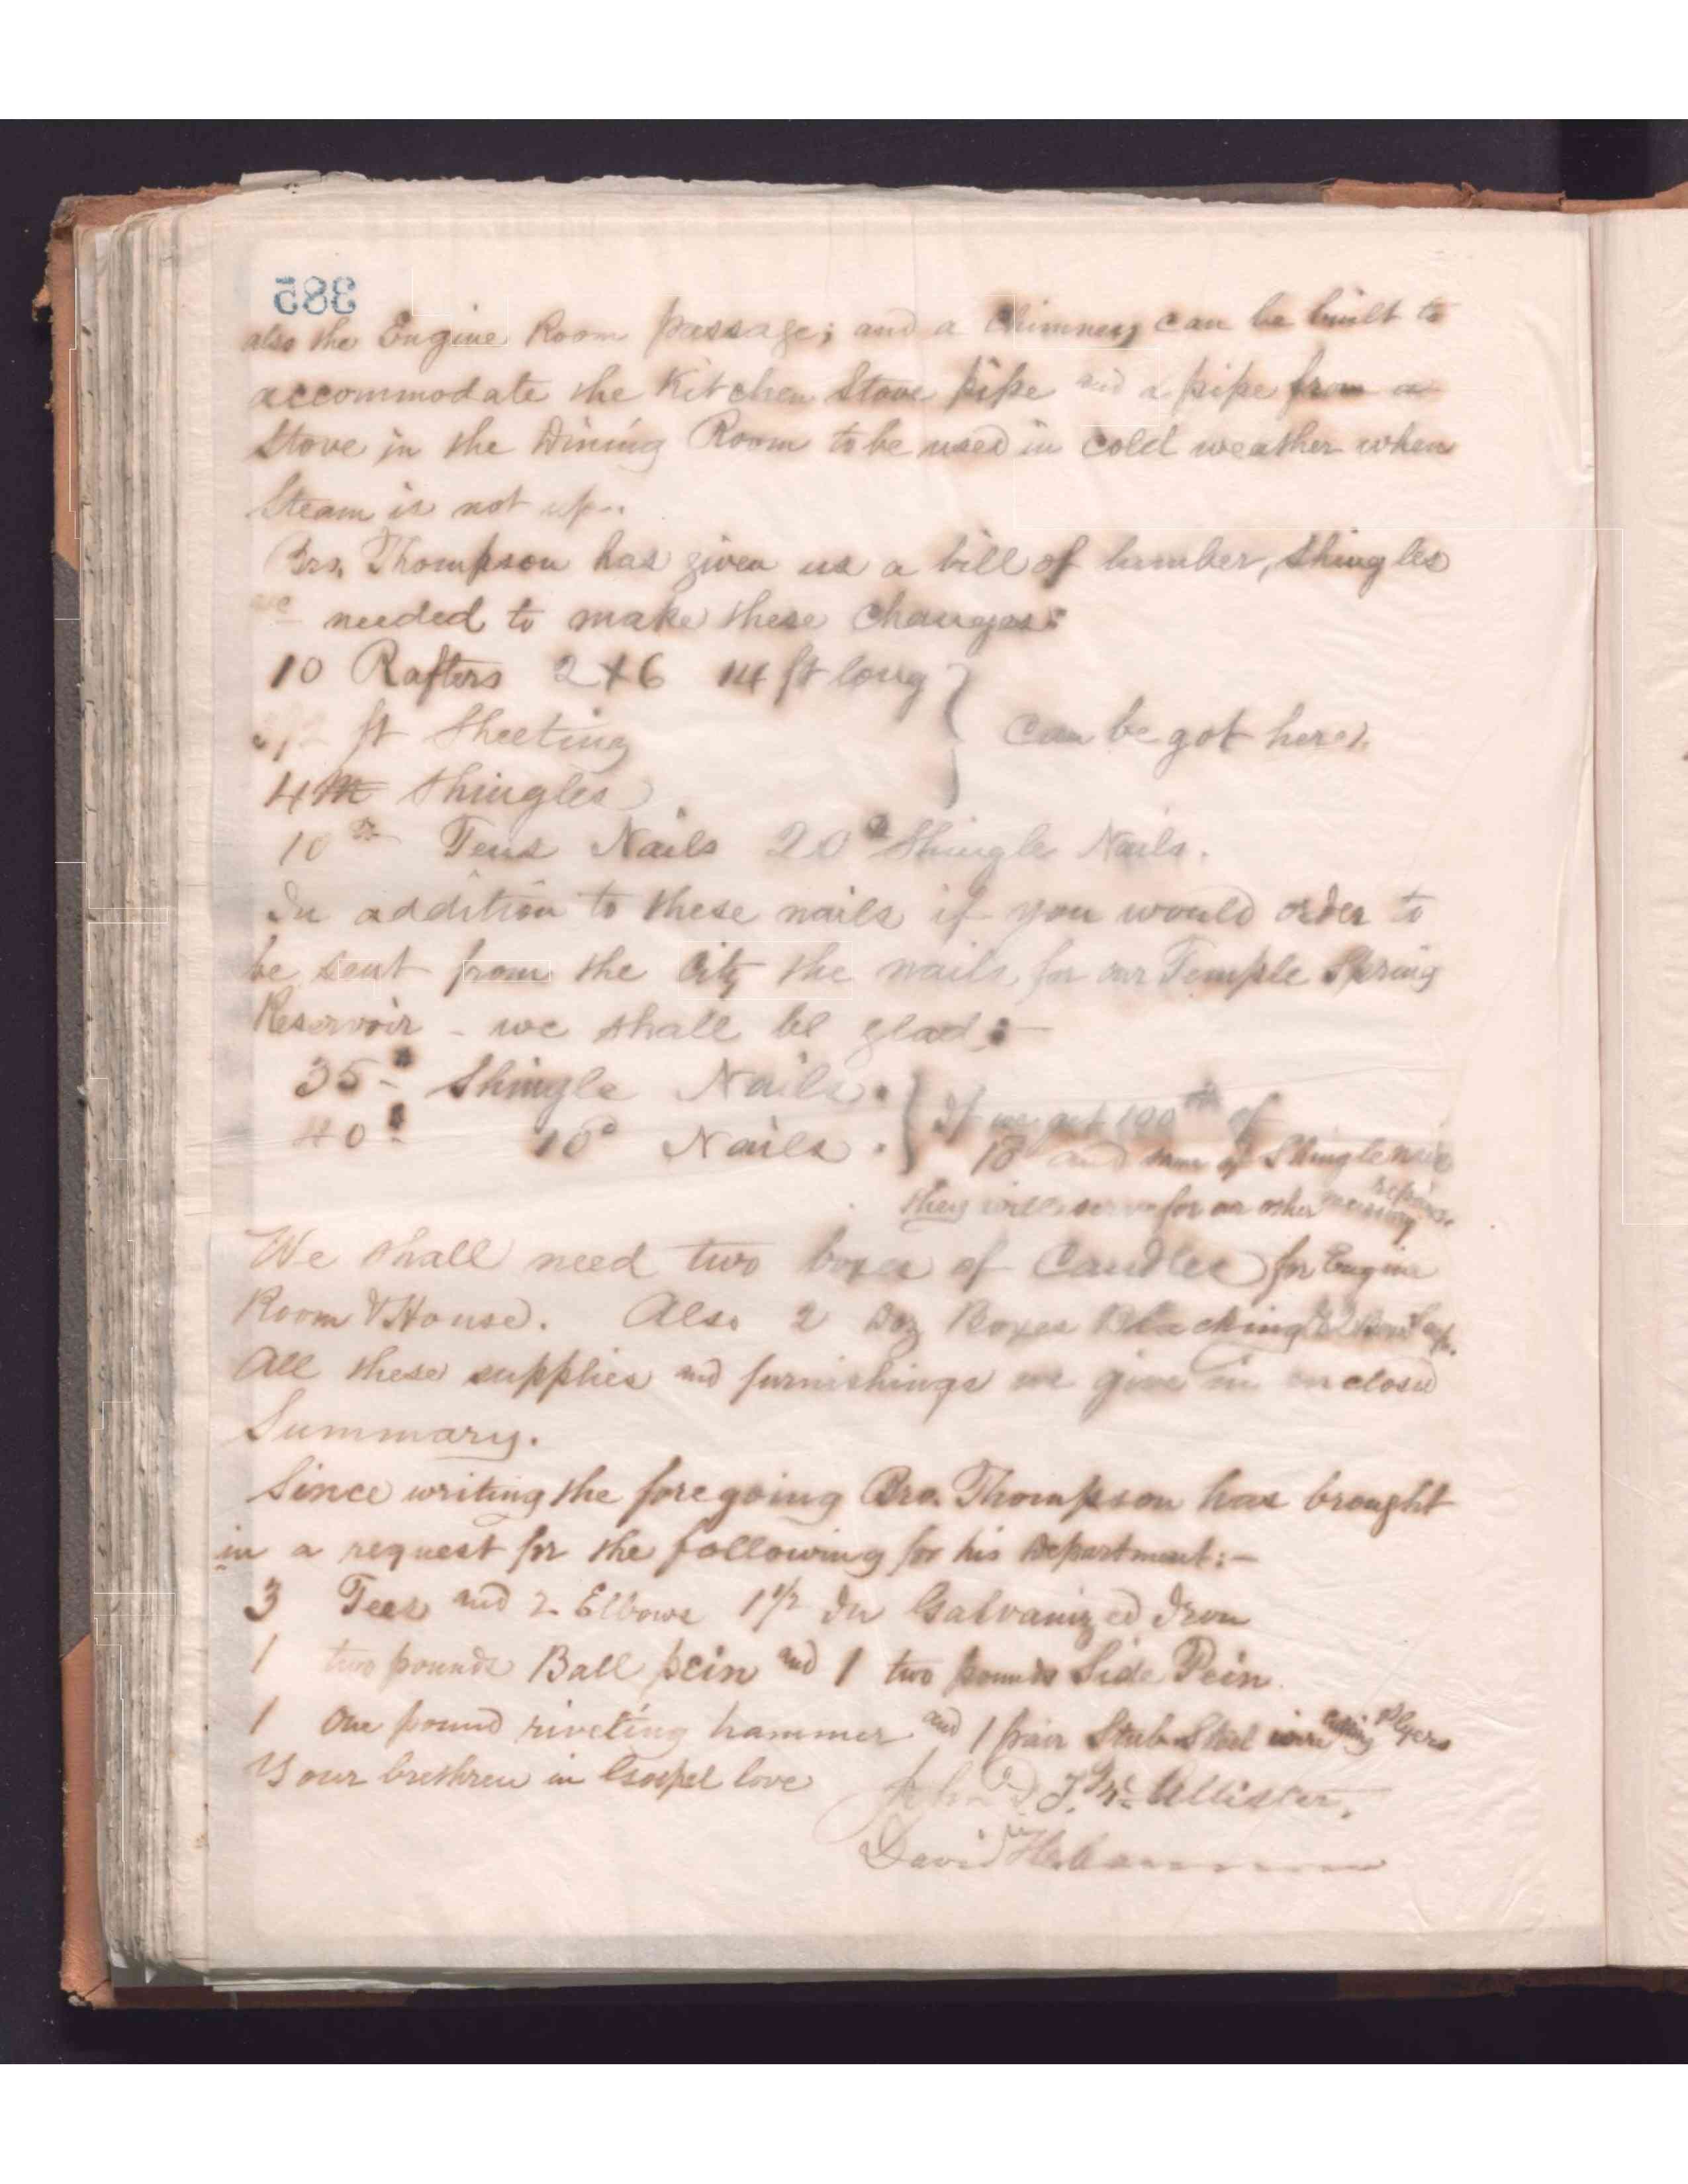 385
also the Engine Room passage; and a Chimney can be built to
accommodate the Kitchen Stove pipe and a pipe from a
Stove in the Dining Room to be used in cold weather when
Steam is not up.
Bro. Thompson has given us a bill of lumber, Shingles
&c needed to make these changes:
10 Rafters 2x6 14 ft long
ft Sheeting
can be got here.
4 M Shingles
10 Tens Nails 20 Shingle Nails.
In addition to these nails if you would order to
be sent from the City the nails for our Temple Spring
Reservoir - we shall be glad:-
35 Shingle Nails.
40 10d Nails.
If we get 100 of
10d and same of Shingle nails
they will serve for our other necessary repairs.
We shall need two boxes of Candles for Engine
Room & House. Also 2 Doz Boxes Blacking
All these supplies and furnishings we give in enclosed
Summary.
Since writing the foregoing Bro. Thompson has brought
in a request for the following for his Department:-
3 Tees and 2 Elbows 1 1/2 In Galvanized Iron
1 two pounds Ball pein and 1 two pounds Side Pein
1 One pound riveting hammer and 1 pair Stubs Steel wire cutting Plyers
Your brethren in Gospel love John D. T. McAllister,
David H. Cannon